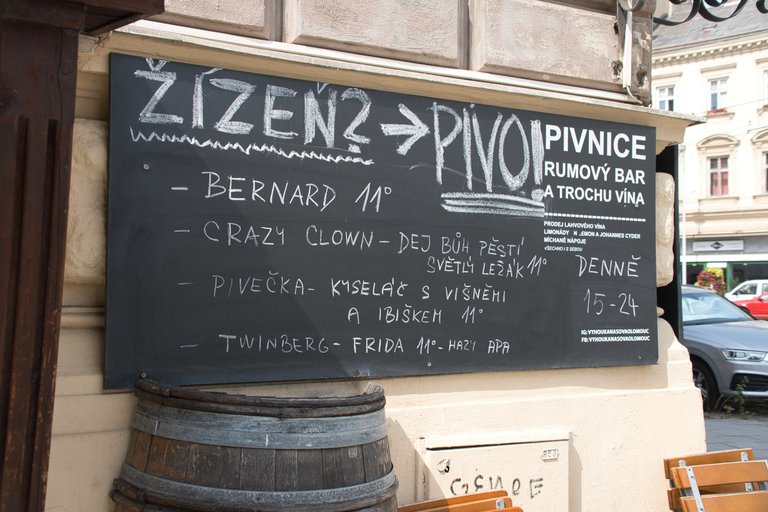 ŽÍZEŇ? → PIVO!
- BERNARD 11°
- CRAZY CLOWN - DEJ BŮH PĚSTÍ
SVĚTLÝ LEŽÁK 11°
- PIVEČKA - KYSELÁČ S VIŠNĚMI
A IBIŠKEM 11°
- TWINBERG - FRIDA 11° - HAZY APA
PIVNICE
RUMOVÝ BAR
A TROCHU VÍNA
PRODEJ LAHVOVÉHO VÍNA
LIMONÁDY N EMON A JOHANNES CYDER
MÍCHANÉ NÁPOJE
VŠECHNO I S SEBOU
DENNĚ
15-24
IG: VYHOUKANASOVAOLOMOUC
FB: VYHOUKANASOVAOLOMOUC